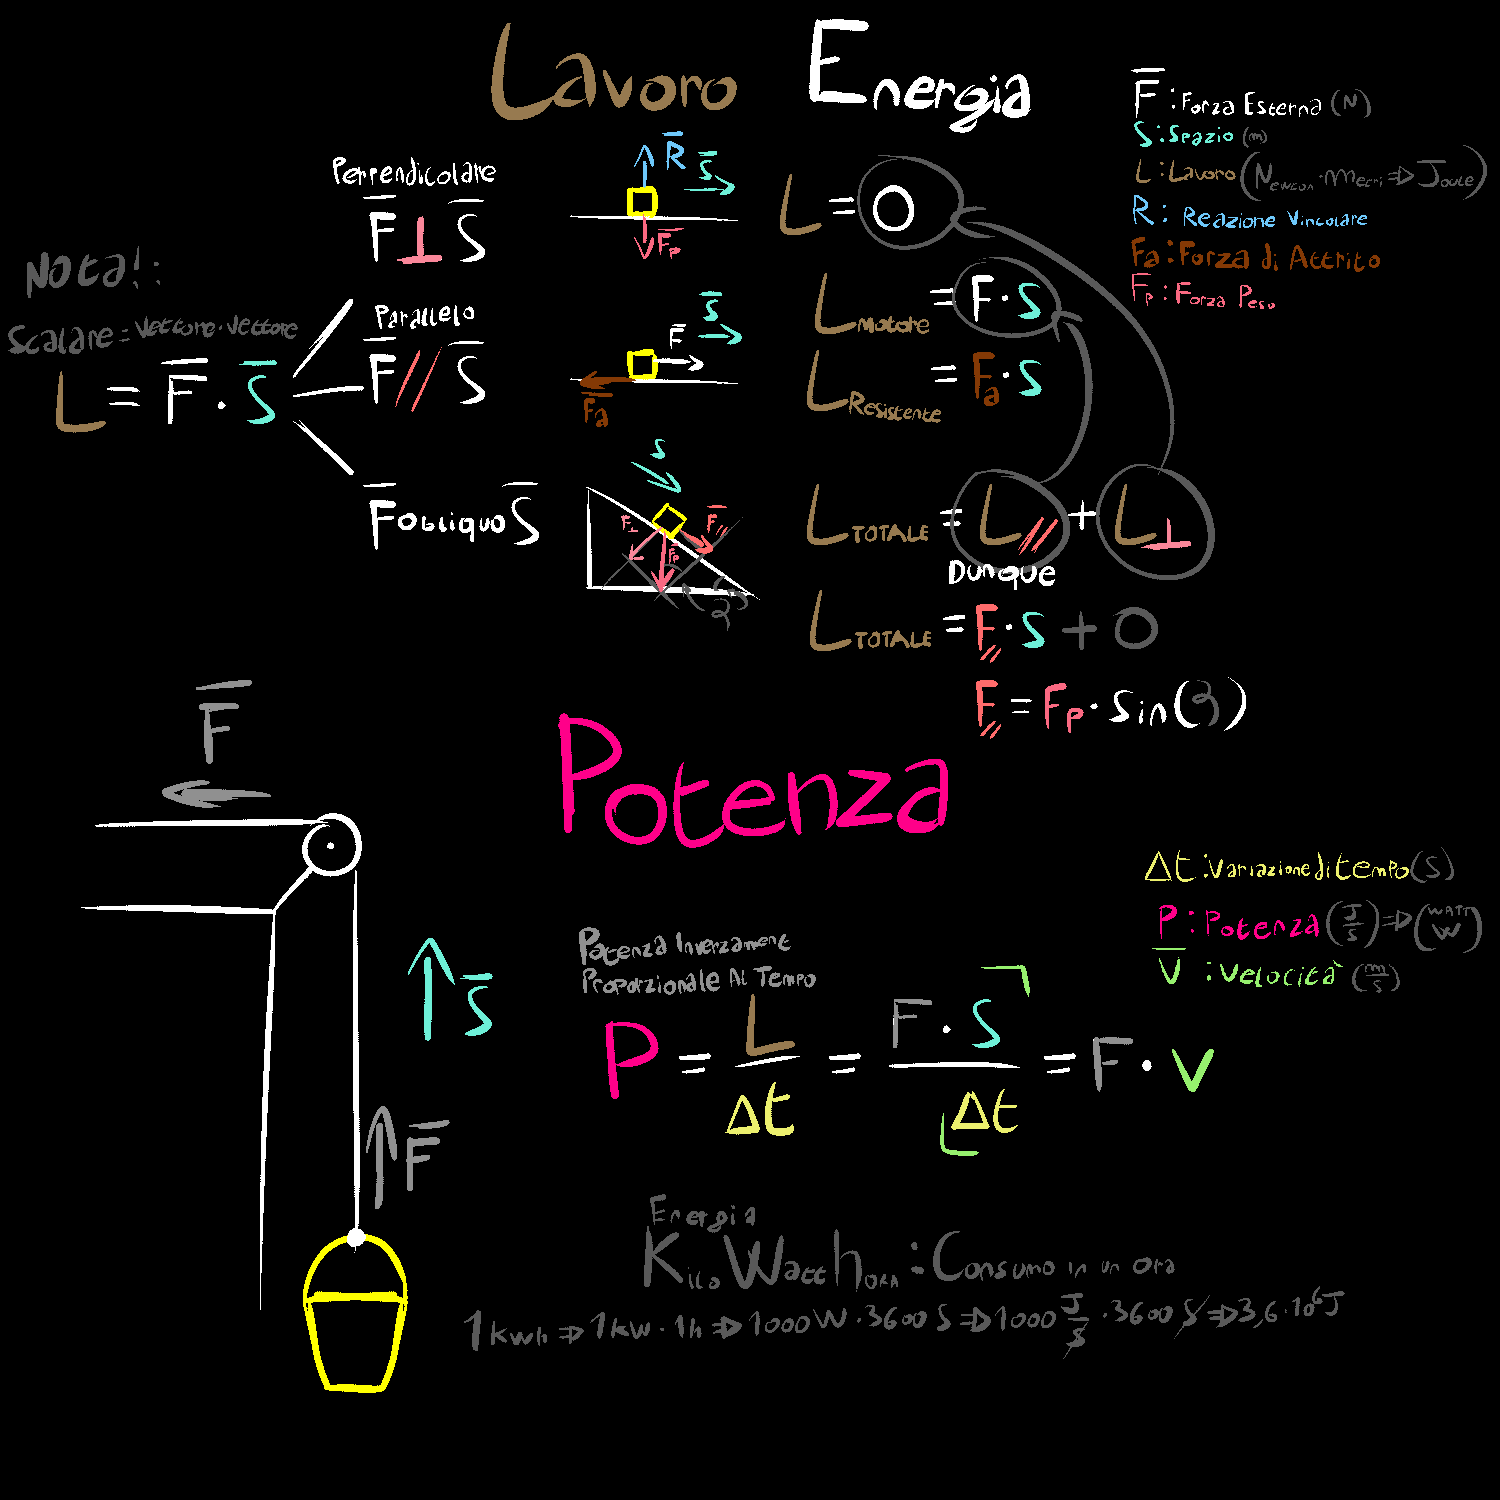 Lavoro Energia
F : Forza Esterna (N)
S : Spazio (m)
L : Lavoro (Newton · metri => Joule)
R : Reazione Vincolare
Fa : Forza di Attrito
Fp : Forza Peso
Nota! :
Scalare = Vettore · Vettore
L = F · S
Perpendicolare
F ⊥ S
R
S
Fp
L = 0
Parallelo
F // S
S
F
Fa
L Motore = F · S
L Resistente = Fa · S
F obliquo S
S
F⊥
F//
Fp
L TOTALE = L// + L⊥
Dunque
L TOTALE = F// · S + 0
F// = Fp · sin(
Potenza
F
S
F
Δt : Variazione di tempo (S)
P : Potenza (J/S) => (WATT W)
V : Velocità (m/s)
Potenza Inverzament
Proporzionale Al Tempo
P = L/Δt = F · S/Δt = F · V
Energia
Kilo Watt hORA : Consumo in un ora
1 kwh => 1 kW · 1h => 1000 W · 3600 S => 1000 J/S · 3600 S => 3,6 · 10⁶ J